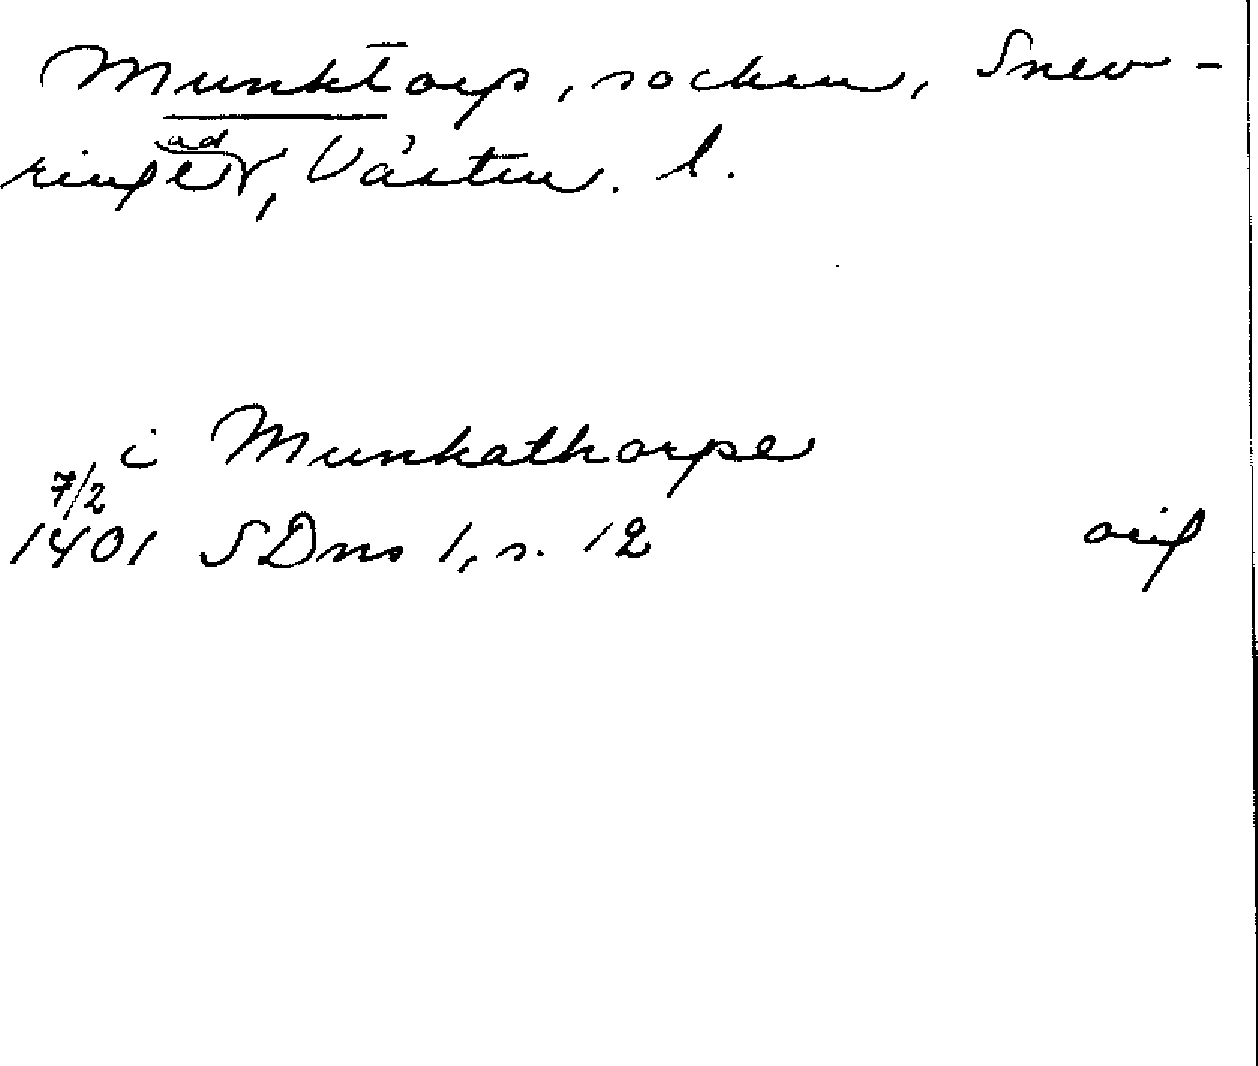 Munktorp, socken, Snev-
ringe, Västm. l.
i Munkathorpe
7/2
1401 SDns 1, s. 12 orig